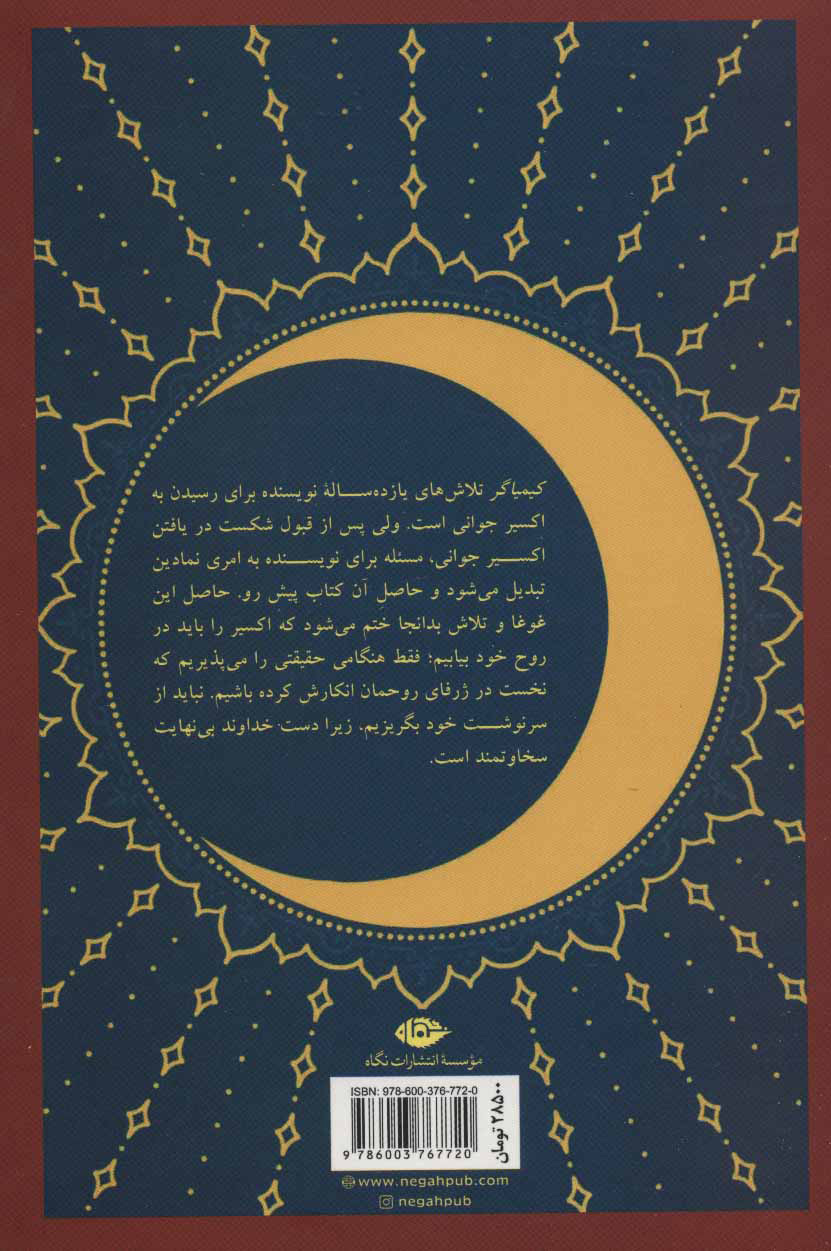 کیمیاگر تلاش‌های یازده‌سالهٔ نویسنده برای رسیدن به
اکسیر جوانی است. ولی پس از قبول شکست در یافتن
اکسیر جوانی، مسئله برای نویسنده به امری نمادین
تبدیل می‌شود و حاصلِ آن کتاب پیش رو. حاصل این
غوغا و تلاش بدانجا ختم می‌شود که اکسیر را باید در
روح خود بیابیم؛ فقط هنگامی حقیقتی را می‌پذیریم که
نخست در ژرفای روحمان انکارش کرده باشیم. نباید از
سرنوشت خود بگریزیم، زیرا دست خداوند بی‌نهایت
سخاوتمند است.
مؤسسهٔ انتشارات نگاه
ISBN: 978-600-376-772-0
9 786003 767720
۲۸۵۰۰ تومان
www.negahpub.com
negahpub